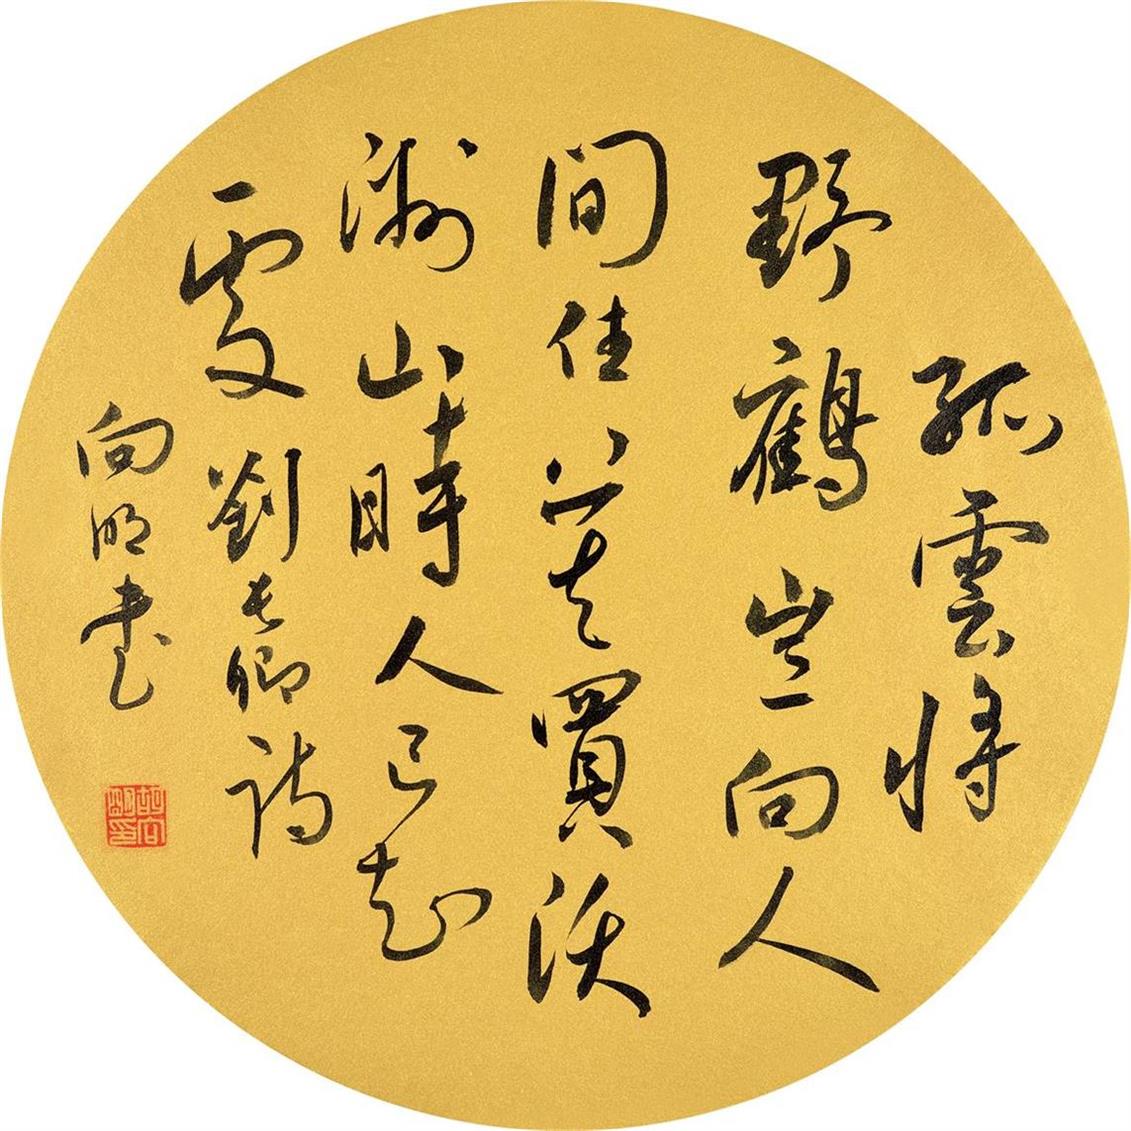 孤雲將
野鶴豈向人
間住莫買沃
洲山時人已知
處劉長卿詩
向明書
胡向明印